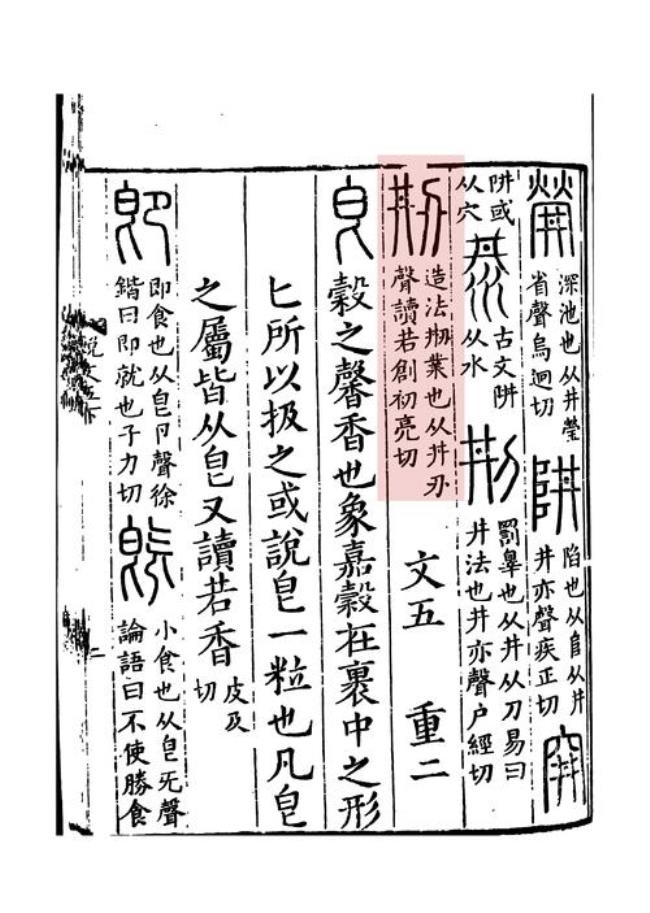 深池也从井瑩省聲烏迥切 阱 陷也从𨸏从井井亦聲疾正切 穽
阱或从穴 汬 古文阱从水 㓝 罰辠也从井从刀易曰井法也井亦聲户經切
刱 造法刱業也从井刅聲讀若創初亮切 文五 重二
皀 穀之馨香也象嘉穀在裹中之形
匕所以扱之或說皀一粒也凡皀
之屬皆从皀又讀若香 皮及切
卽 即食也从皀卪聲徐鍇曰即就也子力切 旣 小食也从皀旡聲論語曰不使勝食
說文五下 二